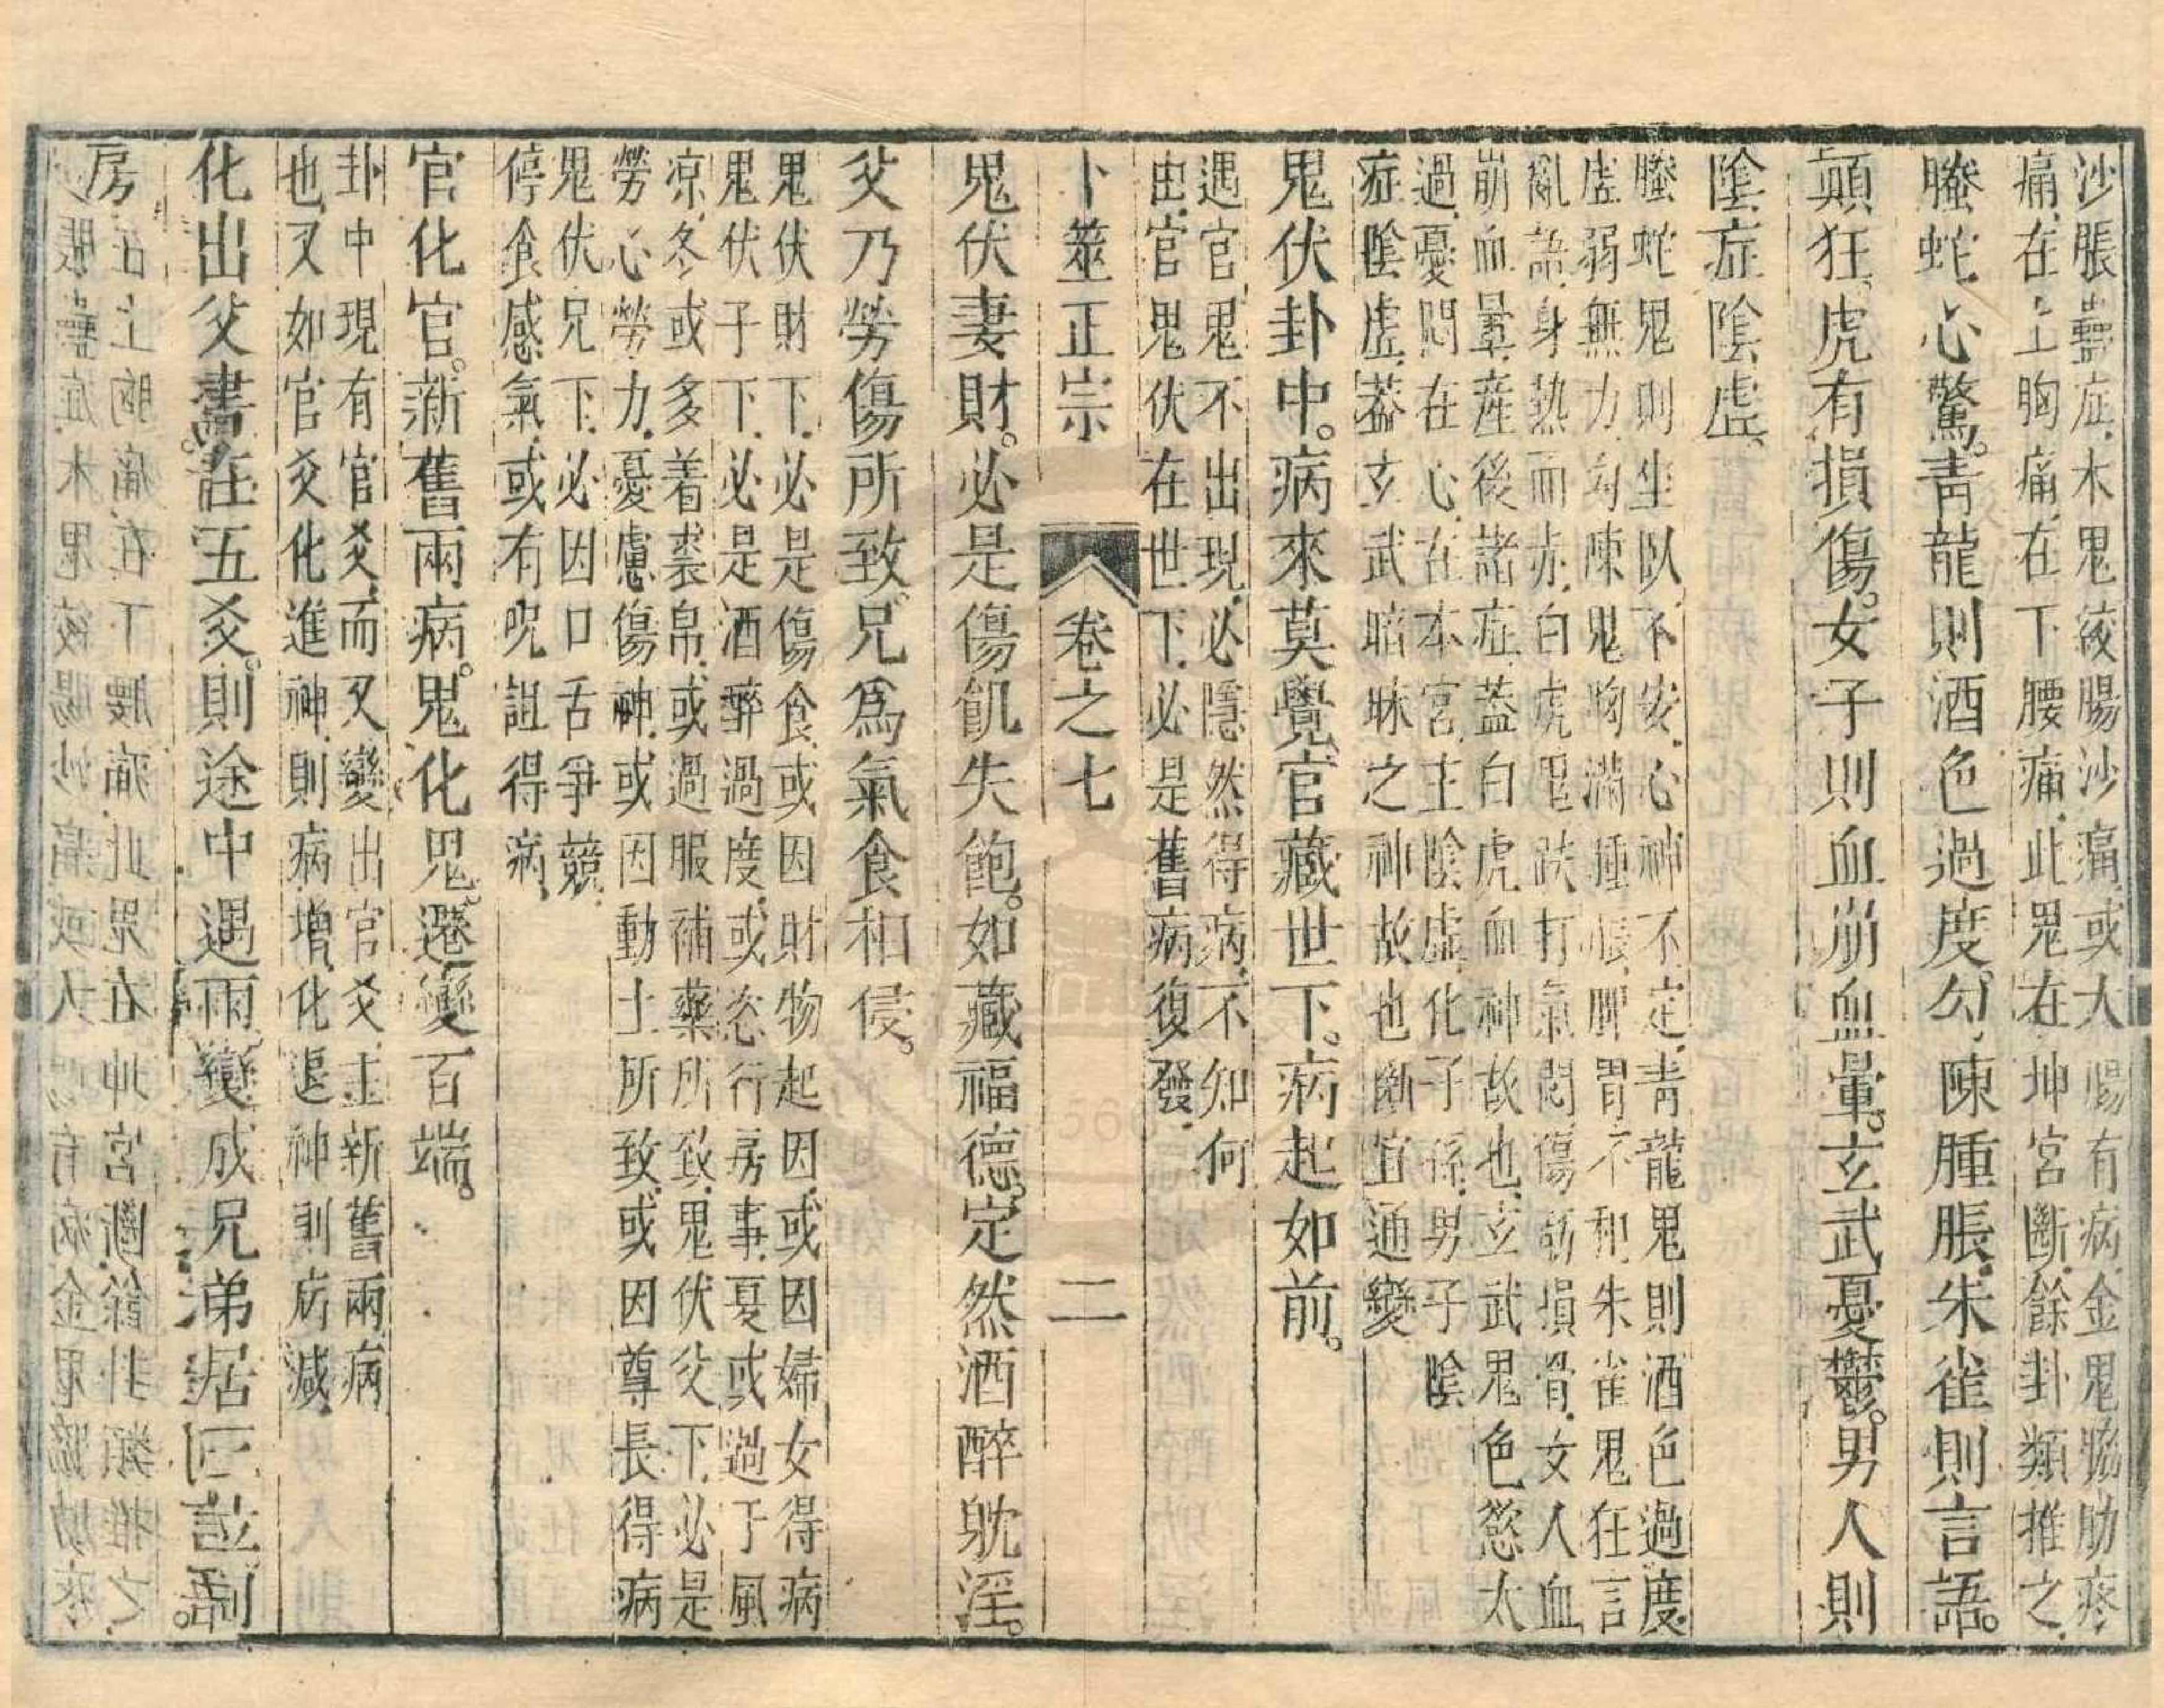 沙脹蠱症木鬼絞腸沙痛或大腸有病金鬼脇肋疼
痛在上胸痛在下腰痛此鬼在坤宮斷餘卦類推之
螣蛇心驚青龍則酒色過度勾陳腫脹朱雀則言語
顛狂虎有損傷女子則血崩血暈玄武憂鬱男人則
陰症陰虛
螣蛇鬼則坐臥不安心神不定青龍鬼則酒色過度
虛弱無力勾陳鬼胸滿腫脹脾胃不和朱雀鬼狂言
亂語身熱而赤白虎鬼跌打氣悶傷筋損骨女人血
崩血暈產後諸症蓋白虎血神故也玄武鬼色慾太
過憂悶在心在本宮主陰虛化子孫男子陰
症陰虛蓋玄武暗昧之神故也斷宜通變
鬼伏卦中病來莫覺官藏世下病起如前
遇官鬼不出現必隱然得病不知何
由官鬼伏在世下必是舊病復發
卜筮正宗 卷之七 二
鬼伏妻財必是傷飢失飽如藏福德定然酒醉躭淫
父乃勞傷所致兄爲氣食和侵
鬼伏財下必是傷食或因財物起因或因婦女得病
鬼伏子下必是酒醉過度或恣行房事夏或過于風
凉冬或多着裘帛或過服補藥所致鬼伏父下必是
勞心勞力憂慮傷神或因動土所致或因尊長得病
鬼伏兄下必因口舌爭競
停食感氣或有呪詛得病
官化官新舊兩病鬼化鬼遷變百端
卦中現有官爻而又變出官爻主新舊兩病
也又如官爻化進神則病增化退神則病減
化出父書在五爻則途中遇雨變成兄弟居
房